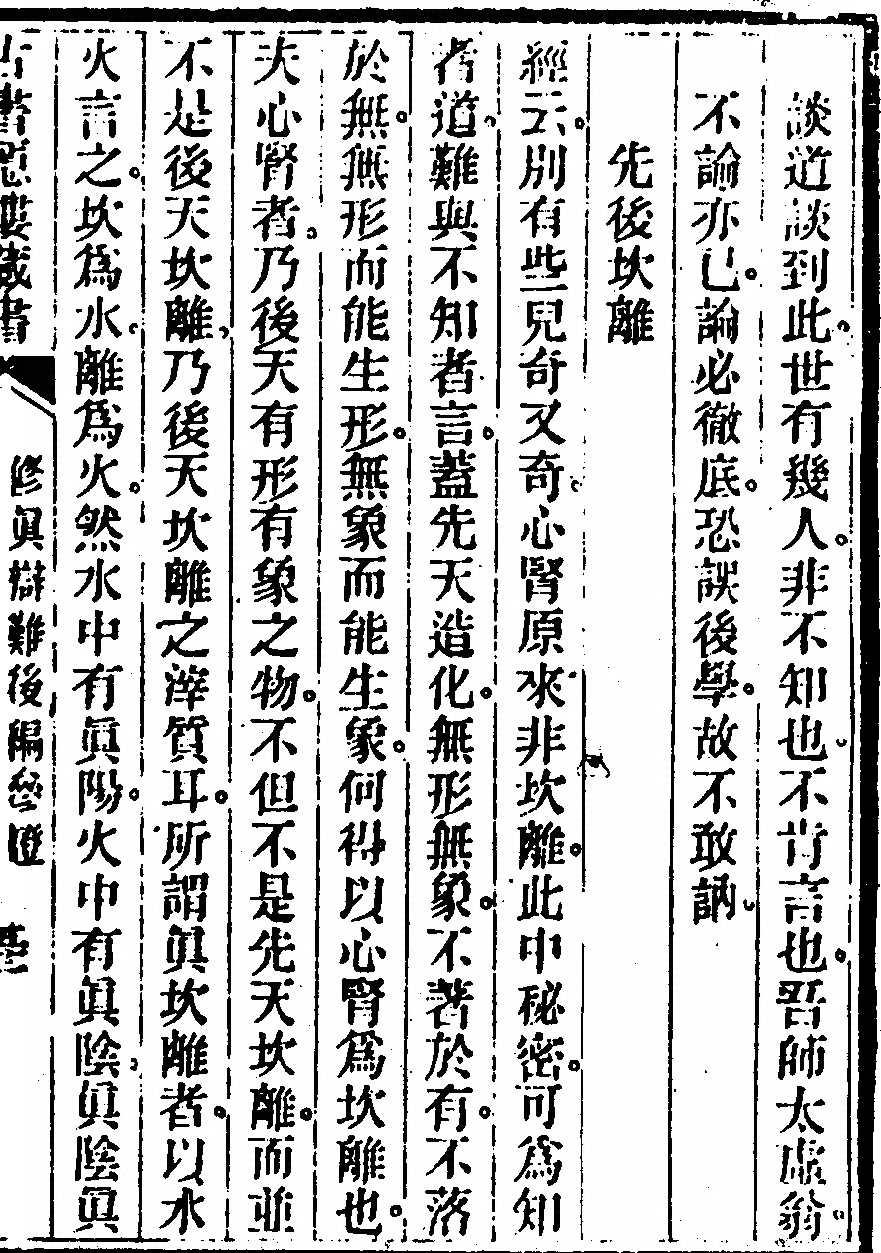 談道談到此世有幾人。非不知也、不肯言也。吾師太虛翁、
不論亦已。論必徹底。恐誤後學。故不敢訥、
先後坎離
經云。別有些兒奇又奇、心腎原來非坎離。此中秘密。可爲知
者道、難與不知者言。蓋先天造化。無形無象。不著於有。不落
於無。無形而能生形。無象而能生象。何得以心腎爲坎離也。
夫心腎者。乃後天有形有象之物。不但不是先天坎離。而並
不是後天坎離、乃後天坎離之滓質耳。所謂眞坎離者。以水
火言之。坎爲水、離爲火。然水中有眞陽。火中有眞陰、眞陰眞
古書隱樓藏書
修眞辯難後編參證